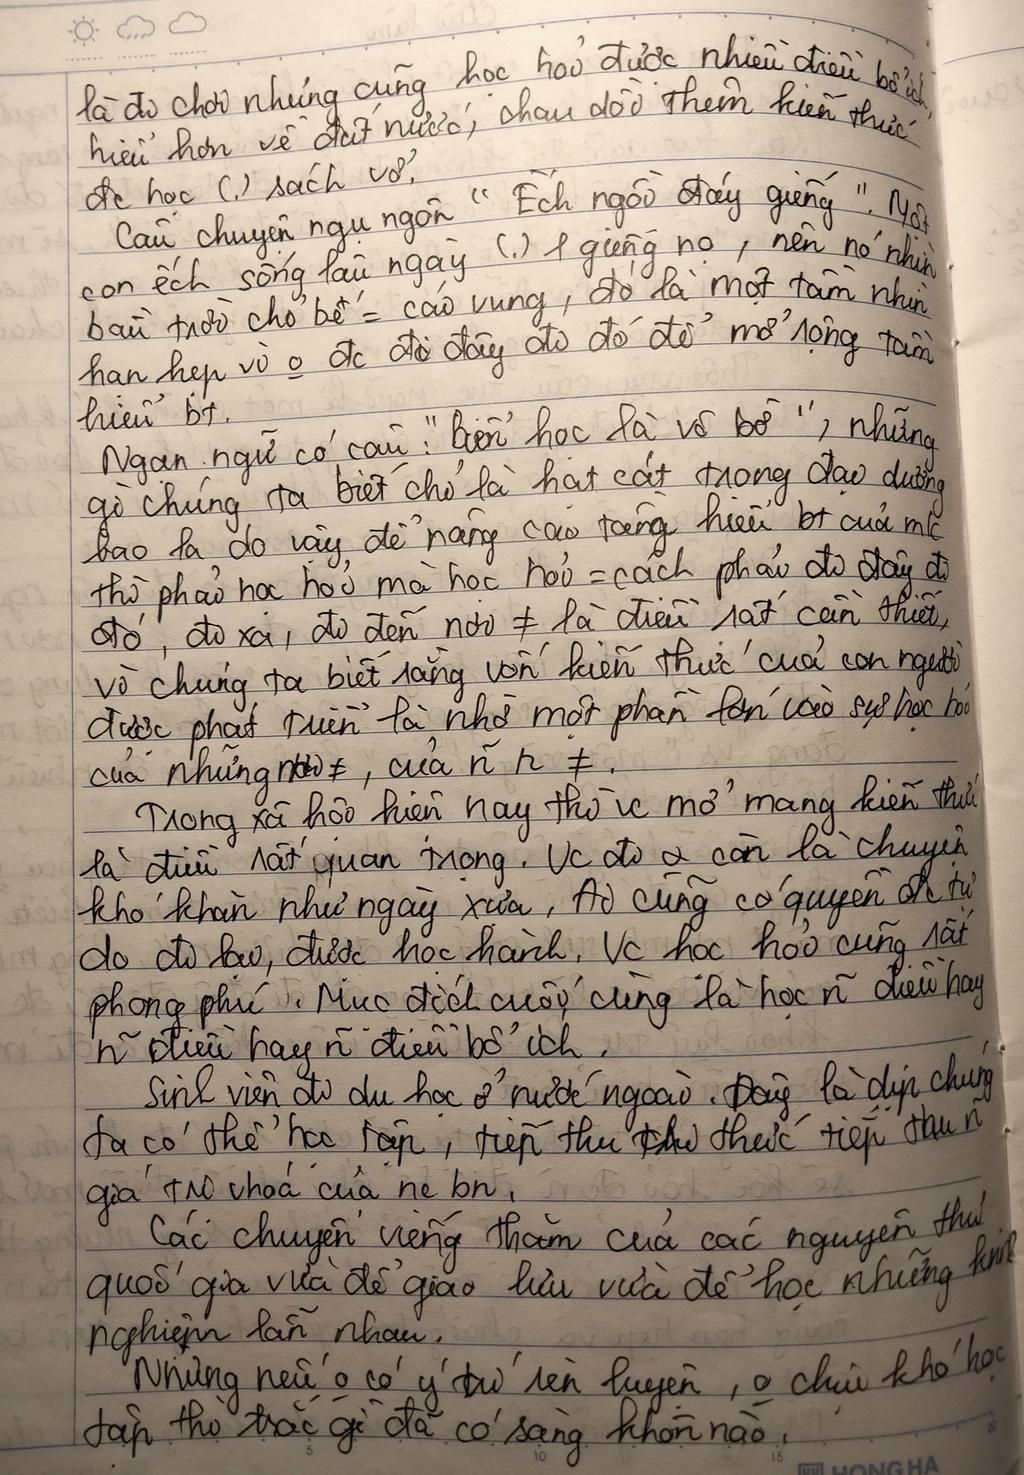 là đi chơi nhưng cũng học hỏi được nhiều điều bổ ích,
hiểu hơn về đất nước, chau dồi thêm kiến thức
đc học (.) sách vở.
Câu chuyện ngụ ngôn "Ếch ngồi đáy giếng". Một
con ếch sống lâu ngày (.) 1 giếng nọ, nên nó nhìn
bầu trời chỉ bé = cái vung, đó là một tầm nhìn
hạn hẹp vì o đc đi đây đi đó để mở rộng tầm
hiểu bt.
Ngạn ngữ có câu: "biển học là vô bờ", những
gì chúng ta biết chỉ là hạt cát trong đại dương
bao la do vậy để nâng cao tầng hiểu bt của
thì phải học hỏi mà học hỏi = cách phải đi đây đi
đó, đi xa, đi đến nơi ≠ là điều rất cần thiết,
vì chúng ta biết rằng vốn kiến thức của con người
được phát triển là nhờ một phần lớn vào sự học hỏi
của những nơi ≠, của ñ n ≠.
Trong xã hội hiện nay thì vc mở mang kiến thức
là điều rất quan trọng. Vc đi o còn là chuyện
khó khăn như ngày xưa, Ai cũng có quyền đc tự
do đi lại, được học hành. Vc học hỏi cũng rất
phong phú. Mục đích cuối cùng là học ñ điều hay
ñ điều hay ñ điều bổ ích.
Sinh viên đi du học ở nước ngoài. Đây là dịp chúng
ta có thể học tập, tiếp thu thức tiếp thu ñ
giá trị vhoá của nc bn.
Các chuyến viếng thăm của các nguyên thủ
quốc gia vừa để giao lưu vừa để học những kinh
nghiệm lẫn nhau.
Nhưng nếu o có ý trí rèn luyện, o chịu khó học
tập thì trắc gì đã có sàng khôn nào.
HONG HA